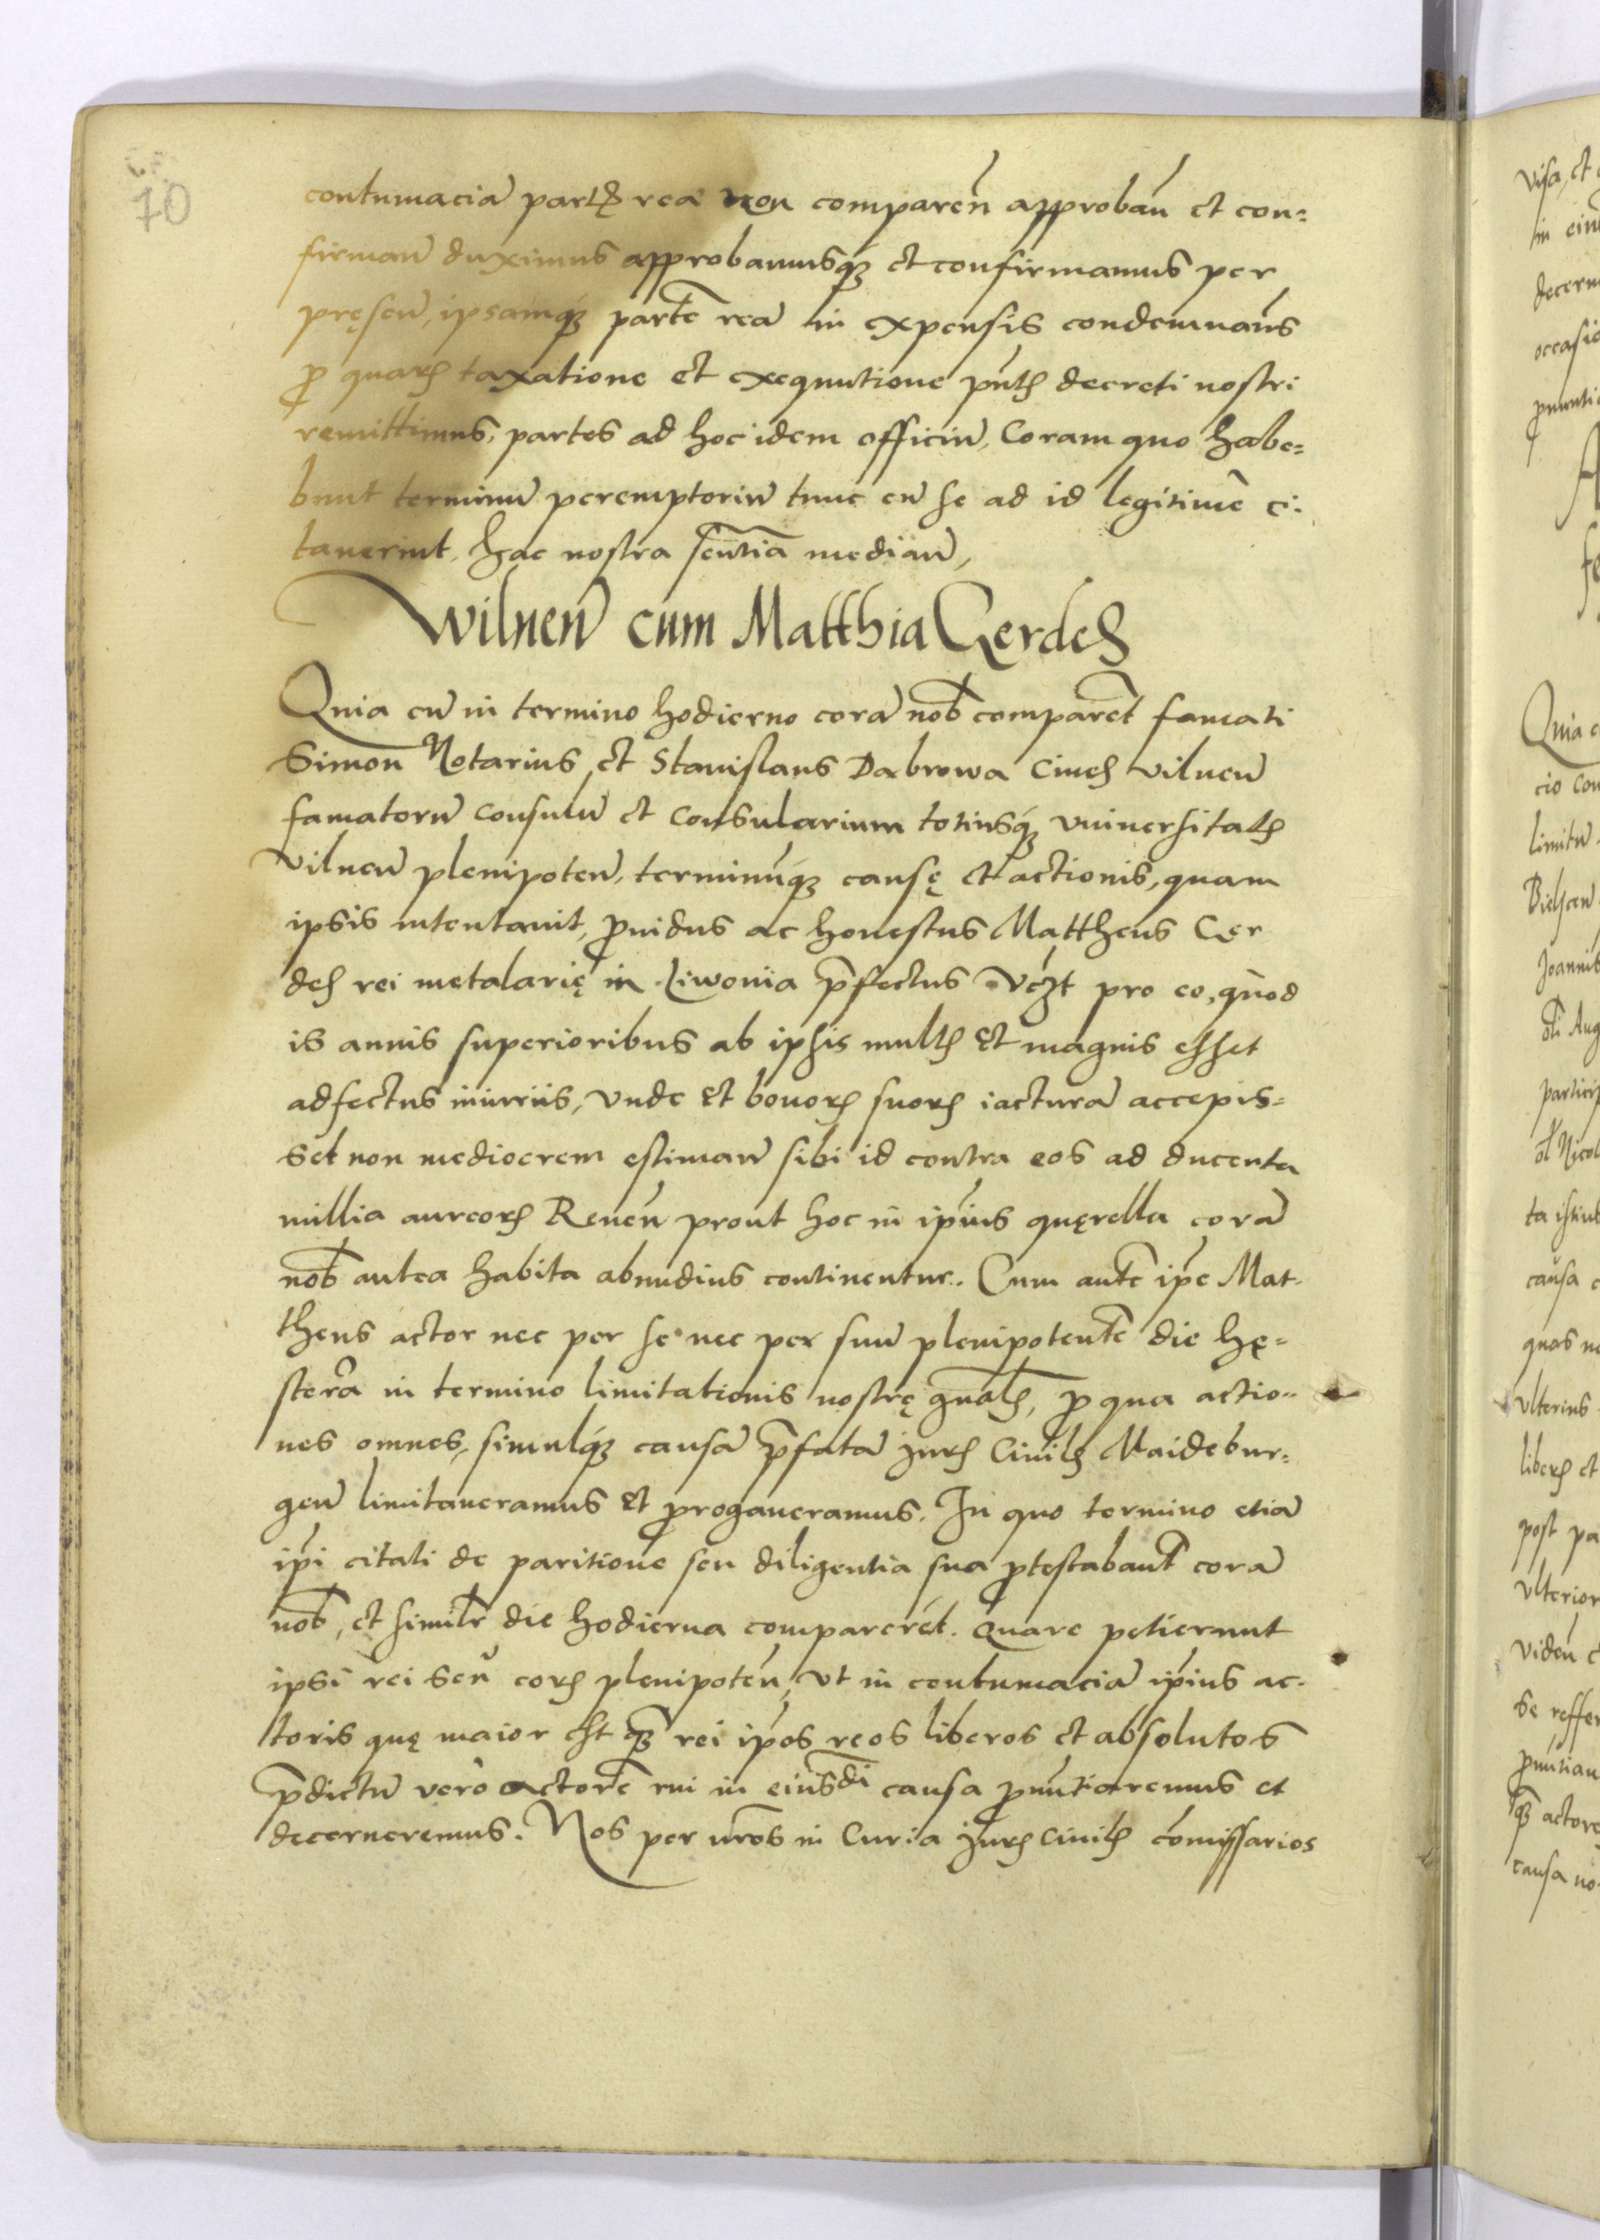 70
contumaciā part(is) rea non comparen̄ approban̄ et con=
firman̄ duximus approbamusq(ue) et confirmamus per
pręsen̄, ipsamq(ue) partē reā in expensis condemnan̄s
p(ro) quar(um) taxatione et exequutione pn̄t(is) decreti nostri
remittimus, partes ad hoc idem officiū, Coram quo habe=
bunt terminū peremptoriū tunc cū se ad id legitimē ci=
taverint, hac nostra sentn̄tia median̄,
Wilnen̄ cum Matthia Gerdes
Quia cū in termino hodierno corā nob̄ comparēt famati
Simon Notarius et Stanislaus Dabrowa Ciues vilnen̄
famatorū consulū et Consularium totiusq(ue) vniversitat(is)
vilnen̄ plenipoten̄, terminumq(ue) causę et actionis, quam
ipsis intentauit, p(ro)uidus ac honestus Mattheus Ger
des rei metalarię in Liwonia p(rae)fectus v(idelice)t pro eo, quòd
is annis superioribus ab ipsis mult(is) et magnis esset
adfectus iniuriis, vnde et bonor(um) suor(um) iacturā accepis=
set non mediocrem estiman̄ sibi id contra eos ad ducenta
millia aureor(um) Renen̄ prout hoc in ip̄ius quęrella corā
nob̄ antea habita abundius continentur. Cum autē ip̄e Mat=
theus actor nec per se nec per suū plenipotentē die hę=
sternā in termino limitationis nostrę gn̄al(is), p(ro) qua actio=
nes omnes, simulq(ue) causā p(rae)fatā Jur(is) Ciuil(is) Maidebur=
gen̄ limitaveramus et prorogaveramus. In quo termino etiā
ip̄i citati de paritione seu diligentia sua p(ro)testabant(ur) corā
nob̄, et simil(ite)r die hodierna comparerēt. Quare petierunt
ipsi rei seu eor(um) plenipoten̄, vt in contumaciā ip̄ius ac=
toris quę maior est q(uam) rei ip̄os reos liberos et absolutos
p(rae)dictū verò actorē rui in eiusdi causa p(ro)nūtiaremus et
decerneremus. Nos per vr̄os in Curia Jur(is) Ciuil(is) com̄issarios